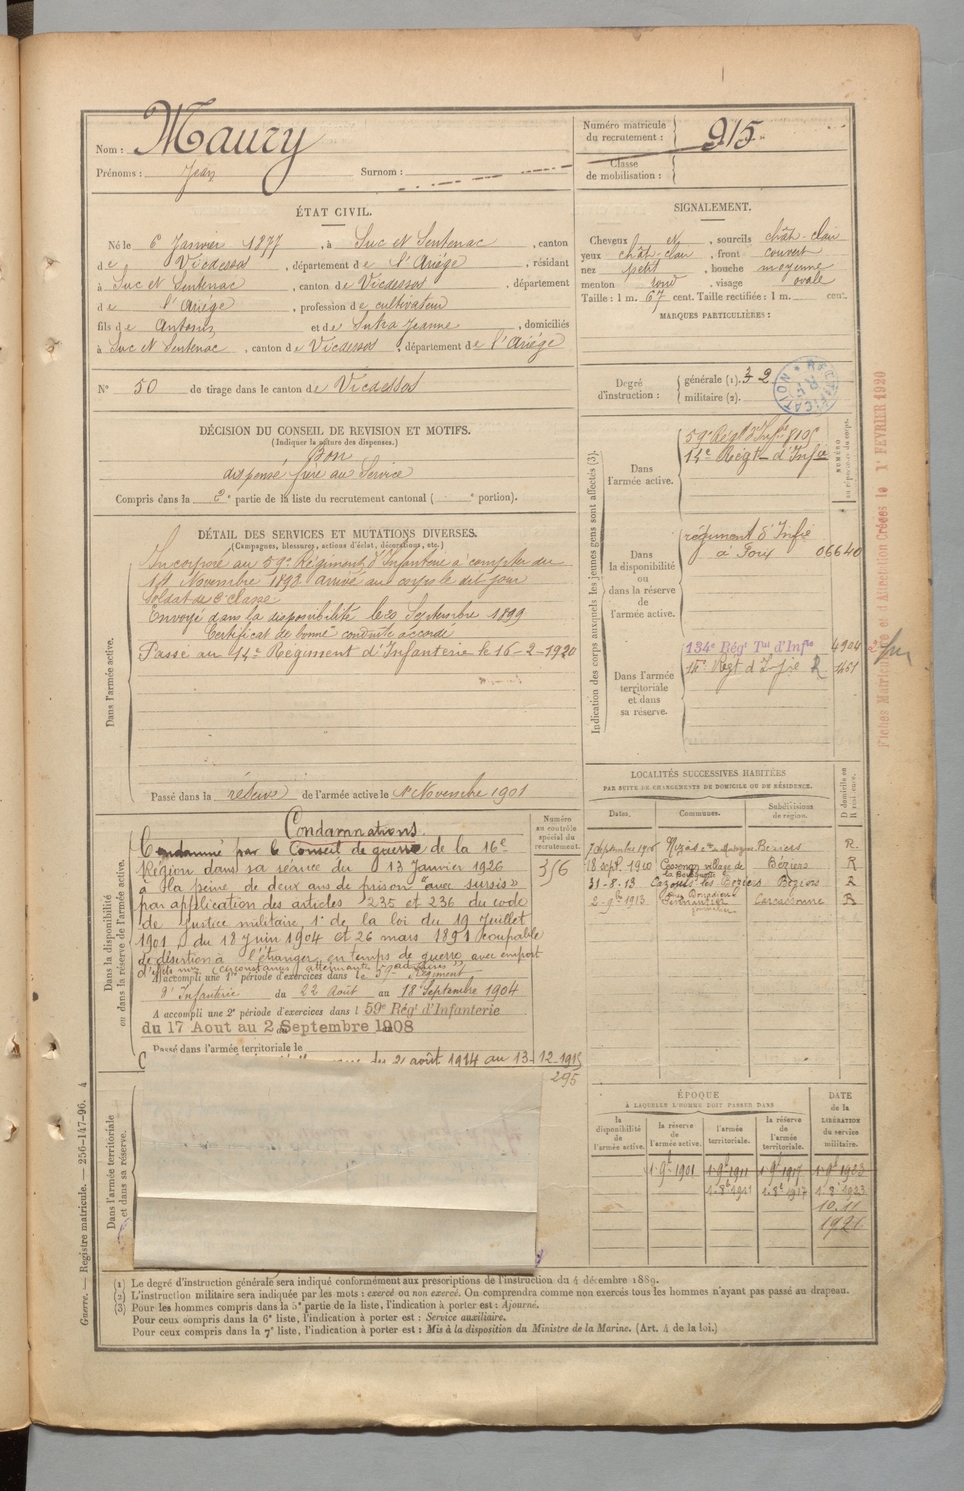 Nom : Maury
Prénoms : Jean Surnom :
Numéro matricule du recrutement : 915
Classe de mobilisation :
ÉTAT CIVIL.
Né le 6 Janvier 1877, à Suc et Sentenac, canton
de Vicdessos, département de l'Ariège, résidant
à Suc et Sentenac, canton de Vicdessos, département
de l'Ariège, profession de cultivateur
fils de Antoine et de Jeanne, domiciliés
à Suc et Sentenac, canton de Vicdessos, département de l'Ariège
N° 50 de tirage dans le canton de Vicdessos
SIGNALEMENT.
Cheveux et, sourcils chât-clair
yeux chât-clair, front couvert
nez petit, bouche moyenne
menton rond, visage ovale
Taille : 1 m. 67 cent. Taille rectifiée : 1 m. cent.
MARQUES PARTICULIÈRES :
Degré d'instruction : générale (1). 3 2
militaire (2).
VÉRIFICATION
DÉCISION DU CONSEIL DE REVISION ET MOTIFS.
(Indiquer la nature des dispenses.)
Bon
dispensé frère au Service
Compris dans la 2e partie de la liste du recrutement cantonal ( e portion).
DÉTAIL DES SERVICES ET MUTATIONS DIVERSES.
(Campagnes, blessures, actions d'éclat, décorations, etc.)
Dans l'armée active.
Incorporé au 59e Régiment d'Infanterie à compter du
Novembre arrivé au corps le dit jour
Soldat de 2e classe
Envoyé dans la disponibilité le 20 Septembre 1899
Certificat de bonne conduite accordé
Passé au 14e Régiment d'Infanterie le 16-2-1920
Passé dans la réserve de l'armée active le 1er Novembre 1901
Indication des corps auxquels les jeunes gens sont affectés (3).
NUMÉRO
Dans l'armée active.
59e Régt d'Infie
14e Régt d'Infie
Dans la disponibilité ou dans la réserve de l'armée active.
régiment d'Infie
à Foix 06640
Dans l'armée territoriale et dans sa réserve.
134e Régt Tal d'Infie 4904
Régt d'Infie R
Fiches Matricule et d'Affectation Créées le 1er FEVRIER 1920
Dans la disponibilité ou dans la réserve de l'armée active.
Numéro au contrôle spécial du recrutement.
356
Condamnations.
Condamné par le Conseil de guerre de la 16e
Région dans sa séance du 13 Janvier 1926
à la peine de deux ans de prison "avec sursis"
par application des articles 235 et 236 du code
de justice militaire, 1er de la loi du 19 Juillet
1901, du 18 Juin 1904 et 26 mars 1891 coupable
de désertion à l'étranger en temps de guerre avec emport
d'effets mre (circonstances atténuantes)
A accompli une 1re période d'exercices dans le 59e Régiment
d'Infanterie du 22 Août au 18 Septembre 1904
A accompli une 2e période d'exercices dans l 59e Régt d'Infanterie
du 17 Aout au 2 Septembre 1908
Passé dans l'armée territoriale le
du 2 août 1914 au 13-12-1915
295
Dans l'armée territoriale et dans sa réserve.
LOCALITÉS SUCCESSIVES HABITÉES
PAR SUITE DE CHANGEMENTS DE DOMICILE OU DE RÉSIDENCE.
Dates. Communes. Subdivisions de région. D domicile ou R résidence.
7 Septembre 1906 Béziers R.
18 sept. 1910 village de Béziers R
31-8-13 Cazouls les Béziers Béziers R
2-9bre 1913 Carcassonne R
ÉPOQUE
À LAQUELLE L'HOMME DOIT PASSER DANS
la disponibilité de l'armée active. la réserve de l'armée active. l'armée territoriale. la réserve de l'armée territoriale.
DATE de la LIBÉRATION du service militaire.
1-9bre 1901 1-9bre 1911 1-9bre 1917 1-9bre 1923
1-8bre 1911 1-8bre 1917 1-8bre 1923
10.11
1921
(1) Le degré d'instruction générale sera indiqué conformément aux prescriptions de l'instruction du 4 décembre 1889.
(2) L'instruction militaire sera indiquée par les mots : exercé ou non exercé. On comprendra comme non exercés tous les hommes n'ayant pas passé au drapeau.
(3) Pour les hommes compris dans la 5e partie de la liste, l'indication à porter est : Ajourné.
Pour ceux compris dans la 6e liste, l'indication à porter est : Service auxiliaire.
Pour ceux compris dans la 7e liste, l'indication à porter est : Mis à la disposition du Ministre de la Marine. (Art. 4 de la loi.)
Guerre. — Registre matricule. — 256-147-96. 4